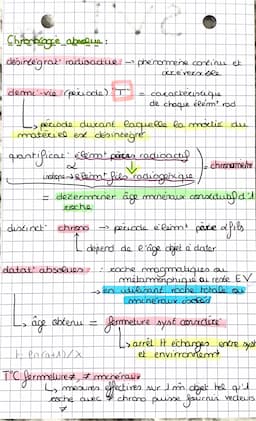 Chronologie absolue :
désintégrat° radioactive → phénomène continu et
irréversible
demi-vie (période) T = caractéristique
de chaque élém^t rad
↳ période durant laquelle la moitié du
matériel est désintégré
quantificat° élém^t pères radioactif
élém^t fils radiogénique = chronomètre
= déterminer âge minéraux constitutifs d'1
roche
chrono → période élém^t père et fils
↳ dépend de l'âge objet à dater
datat° absolues : roche magmatiques ou
métamorphique ou reste EV
→ en utilisant roche totale ou
minéraux
↳ âge obtenu = fermeture syst considéré
↳ arrêt échanges entre syst
et environnem^t
T°C fermeture ≠, ≠ minéraux
↳ mesures effectives sur 1 m̂ objet tel qu'1
roche avec ≠ chrono puisse fournir
≠